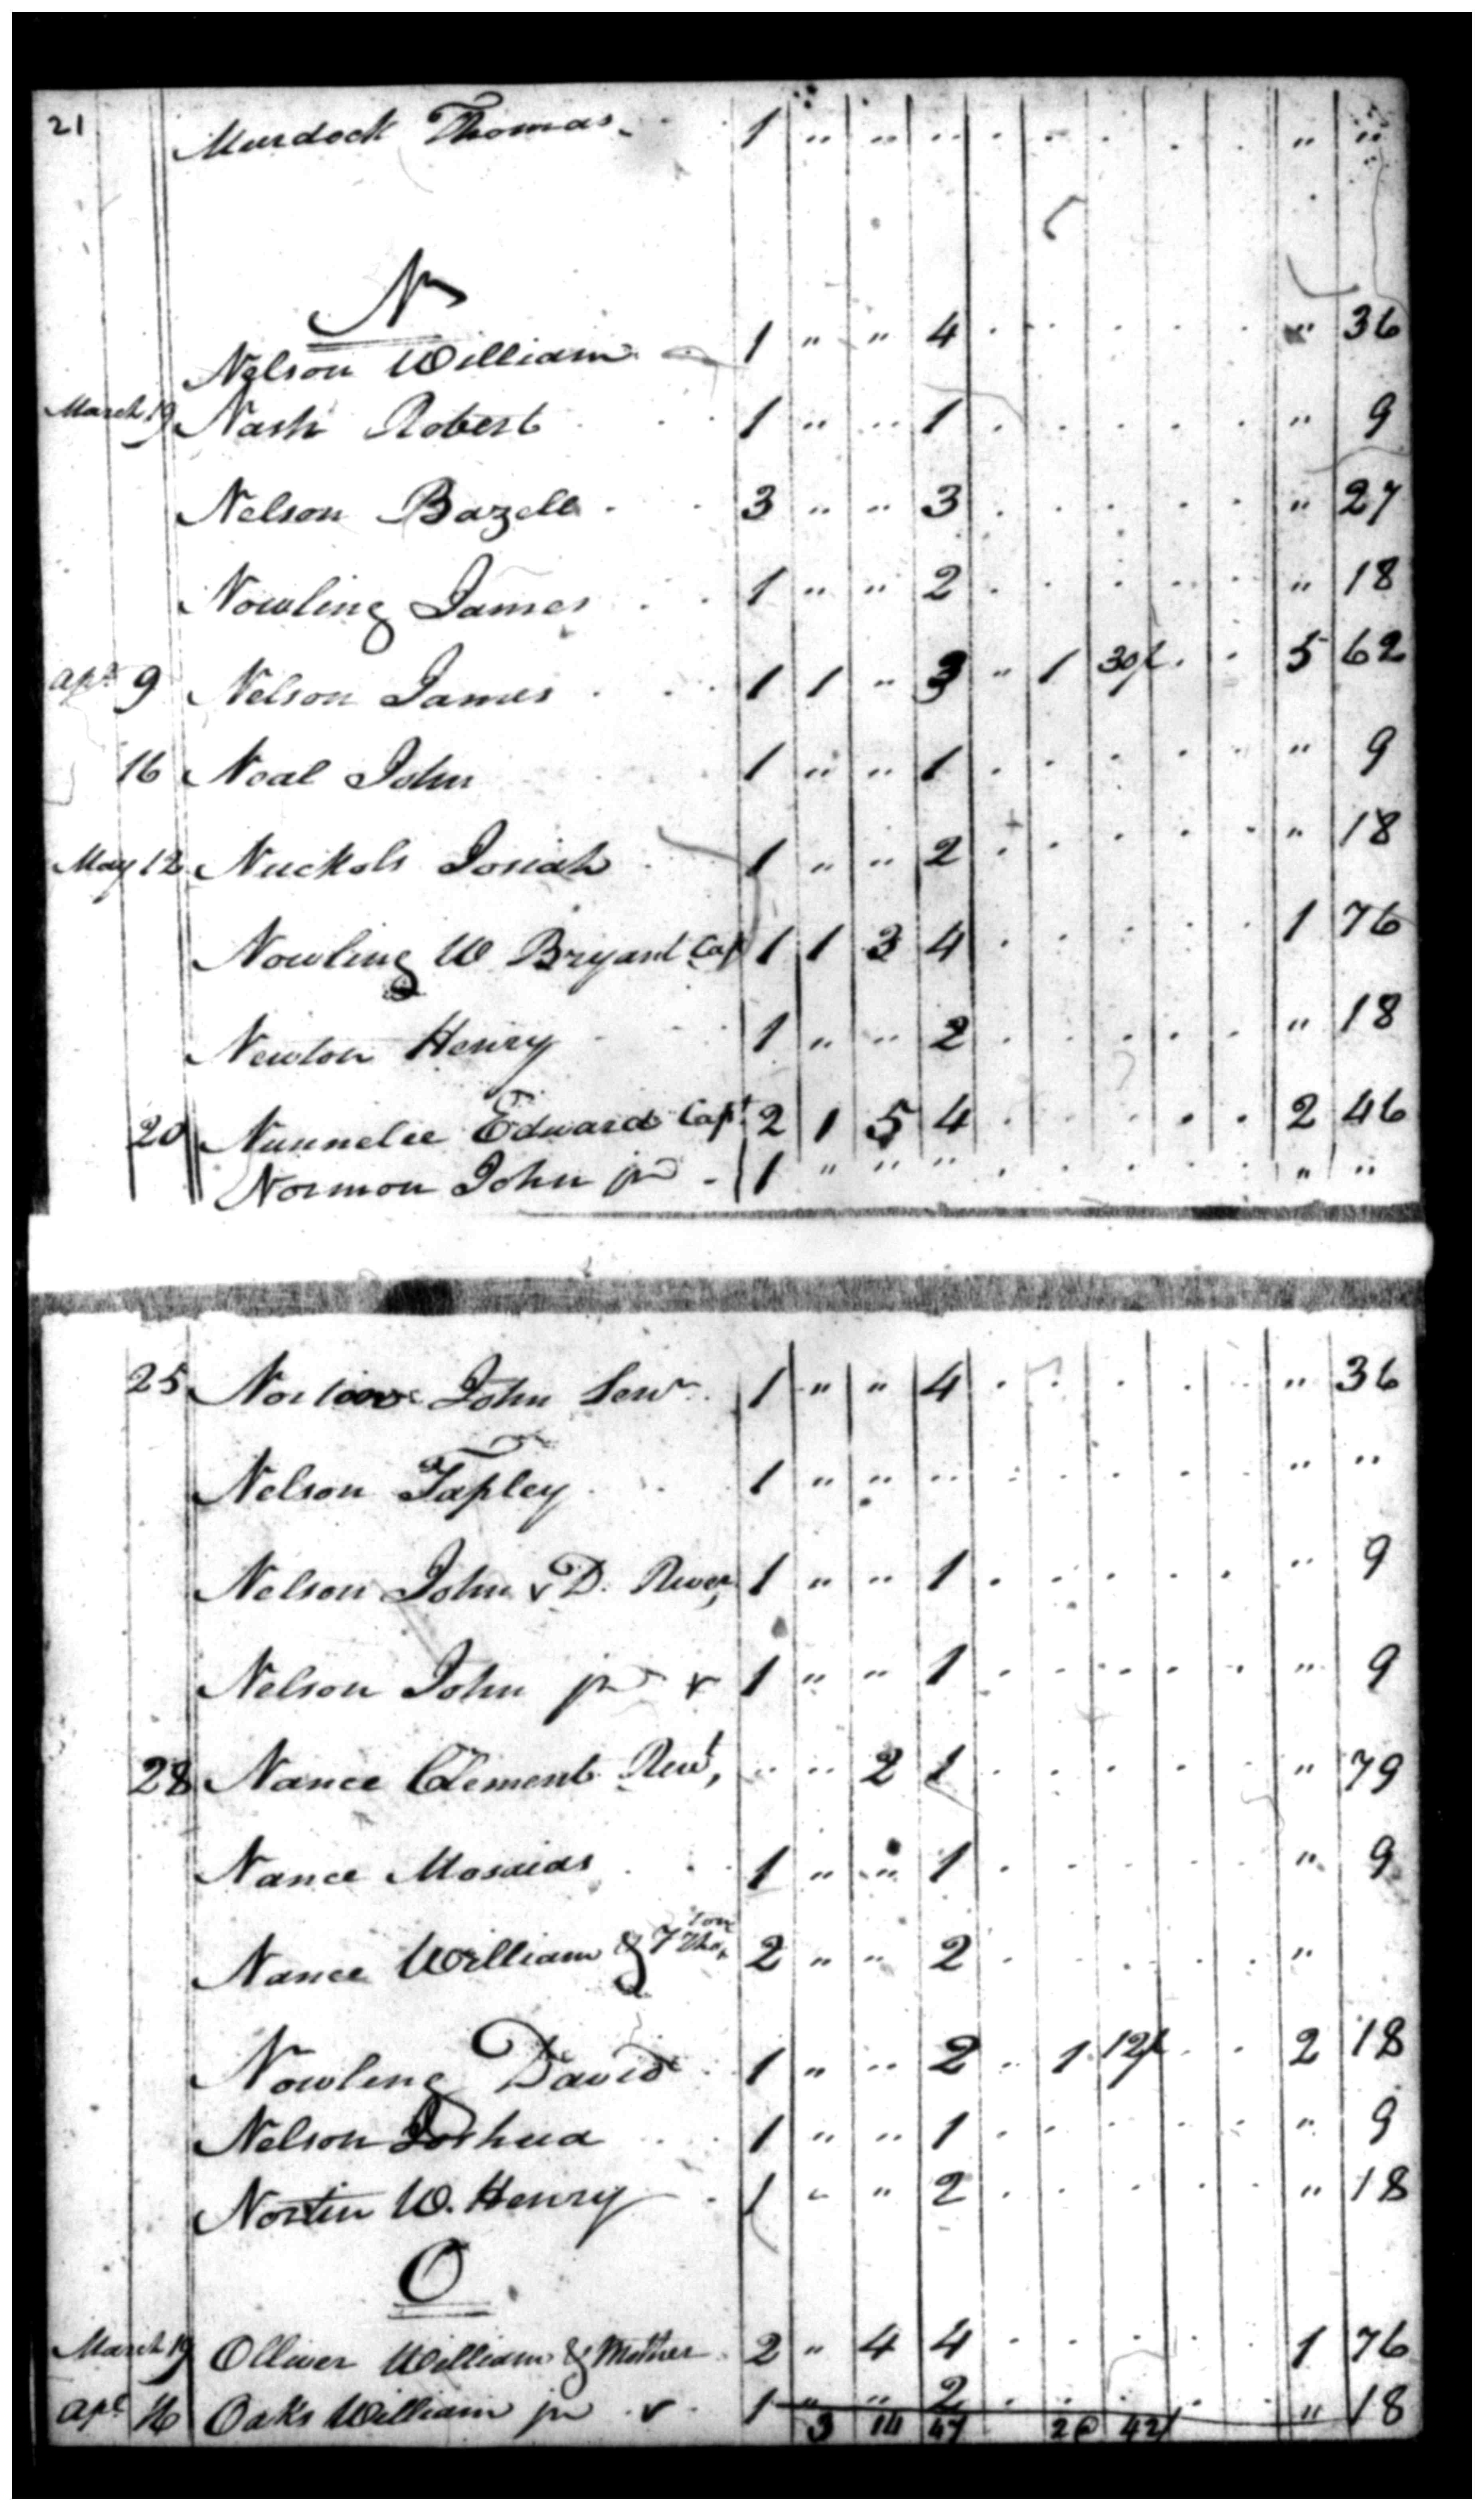 21 Murdock Thomas 1 " " " . . . . . " "
N
Nelson William 1 " " 4 . . . . . " 36
March 19 Nash Robert . . 1 " " 1 . . . . . " 9
Nelson Bazell . . 3 " " 3 . . . . . " 27
Nowling James . . 1 " " 2 . . . . . " 18
Apl 9 Nelson James . . 1 1 " 3 " 1 30/ . . 5 62
16 Neal John 1 " " 1 . . . . . " 9
May 12 Nuckols Josiah . 1 " " 2 . . . . . " 18
Nowling W Bryant Cap 1 1 3 4 . . . . . 1 76
Newton Henry . . 1 " " 2 . . . . . " 18
20 Nunnelee Edward Capt 2 1 5 4 . . . . . 2 46
Normon John jr . 1 " " " . . . . . " "
25 John Senr . 1 " " 4 . . . . . " 36
Nelson Tapley . . 1 " " " . . . . . " "
Nelson John v D. River, 1 " " 1 . . . . . " 9
Nelson John jr v 1 " " 1 . . . . . " 9
28 Nance Clement Revd, " " 2 1 . . . . . " 79
Nance . . 1 " " 1 . . . . . " 9
Nance William & 2 " " 2 . . . . . "
Nowling David . 1 " " 2 . 1 12/ . . 2 18
Nelson Joshua . . 1 " " 1 . . . . . " 9
Nortin W. Henry . 1 " " 2 . . . . . " 18
O
March 19 Olliver William & Mother . 2 " 4 4 . . . . . 1 76
Apl 16 Oaks William jr . v . 1 " " 2 . . . . . " 18
3 14 47 42/